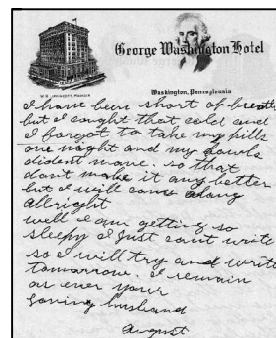 George Washington Hotel
Washington, Pennsylvania
I have been short of breath
but I caught that cold and
I forgot to take my pills
one night and my bowls
dident move. so that
dont make it any better
but I will come along
allright
well I am getting so
sleepy I just cant write
so I will try and write
tomarrow. I remain
as ever your
loving husband
August